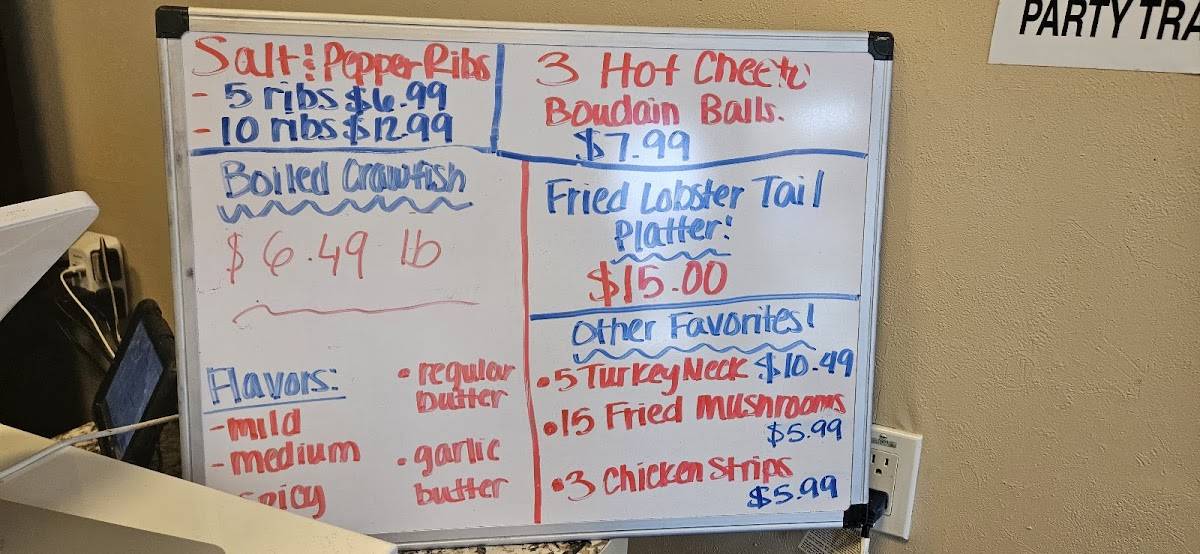 Salt & Pepper Ribs
- 5 ribs $6.99
- 10 ribs $12.99
3 Hot Cheeto
Boudain Balls.
$7.99
Boiled Crawfish
$6.49 lb
Fried Lobster Tail
Platter!
$15.00
Flavors:
- mild
- medium
spicy
• regular
butter
• garlic
butter
Other Favorites!
• 5 Turkey Neck $10.49
• 15 Fried Mushrooms
$5.99
• 3 Chicken Strips
$5.99
PARTY